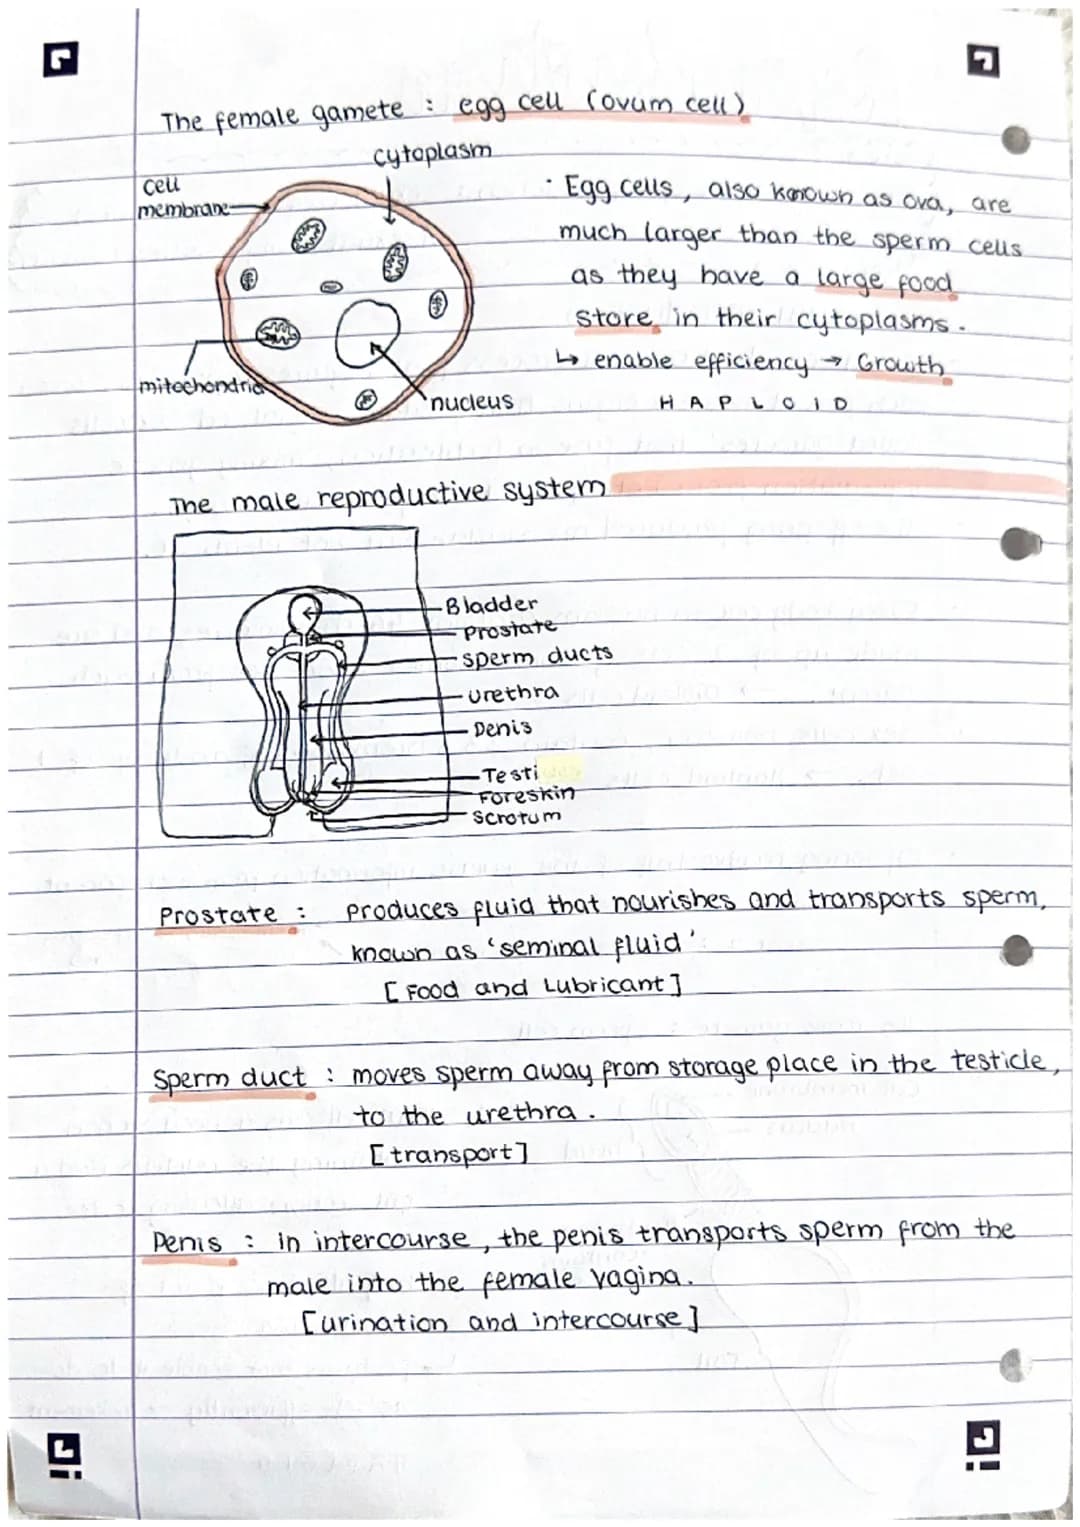 The female gamete : egg cell (ovum cell)
cytoplasm
cell
membrane
mitochondria
nucleus
· Egg cells, also known as ova, are
much larger than the sperm cells
as they have a large food
store in their cytoplasms.
↳ enable efficiency → Growth
H A P L O I D
The male reproductive system
Bladder
Prostate
sperm ducts
urethra
Penis
Testi
Foreskin
Scrotum
Prostate : Produces fluid that nourishes and transports sperm,
known as 'seminal fluid'
[Food and Lubricant]
Sperm duct : moves sperm away from storage place in the testicle,
to the urethra.
[transport]
Penis : in intercourse, the penis transports sperm from the
male into the female vagina.
[urination and intercourse]